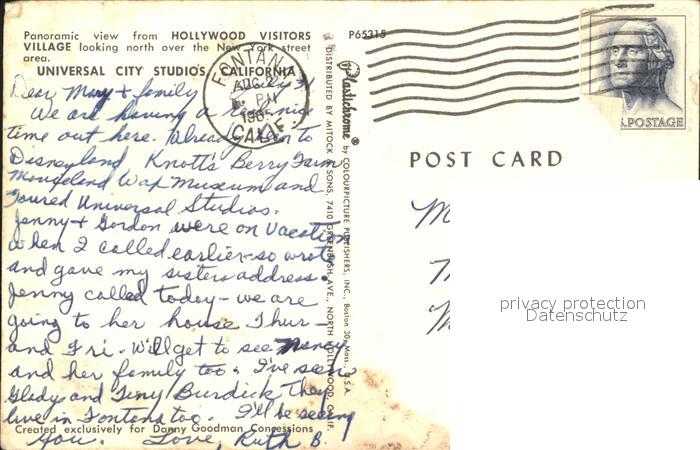 Panoramic view from HOLLYWOOD VISITORS
VILLAGE looking north over the New York street
area.
UNIVERSAL CITY STUDIOS, CALIFORNIA
Dear Mary + family
We are having a nice
time out here. Already been to
Disneyland, Knott's Berry Farm
Movieland Wax Museum and
Toured Universal Studios.
Jenny + Gordon were on Vacation
when I called earlier - so wrote
and gave my sisters address.
Jenny called today - we are
going to her house Thur -
and Fri. Will get to see Nancy
and her family too. I've seen
Gladys and Tiny Burdick They
live in Fontana too. I'll be seeing
you. Love, Ruth B.
Created exclusively for Danny Goodman Concessions
FONTANA
AUG 2
PM
CALIF.
DISTRIBUTED BY MITOCK & SONS, 7410 GREENBUSH AVE., NORTH HOLLYWOOD, CALIF.
Plastichrome ® by COLOURPICTURE PUBLISHERS, INC., Boston 30, Mass., U.S.A.
P65315
U.S. POSTAGE
POST CARD
M
M
privacy protection
Datenschutz